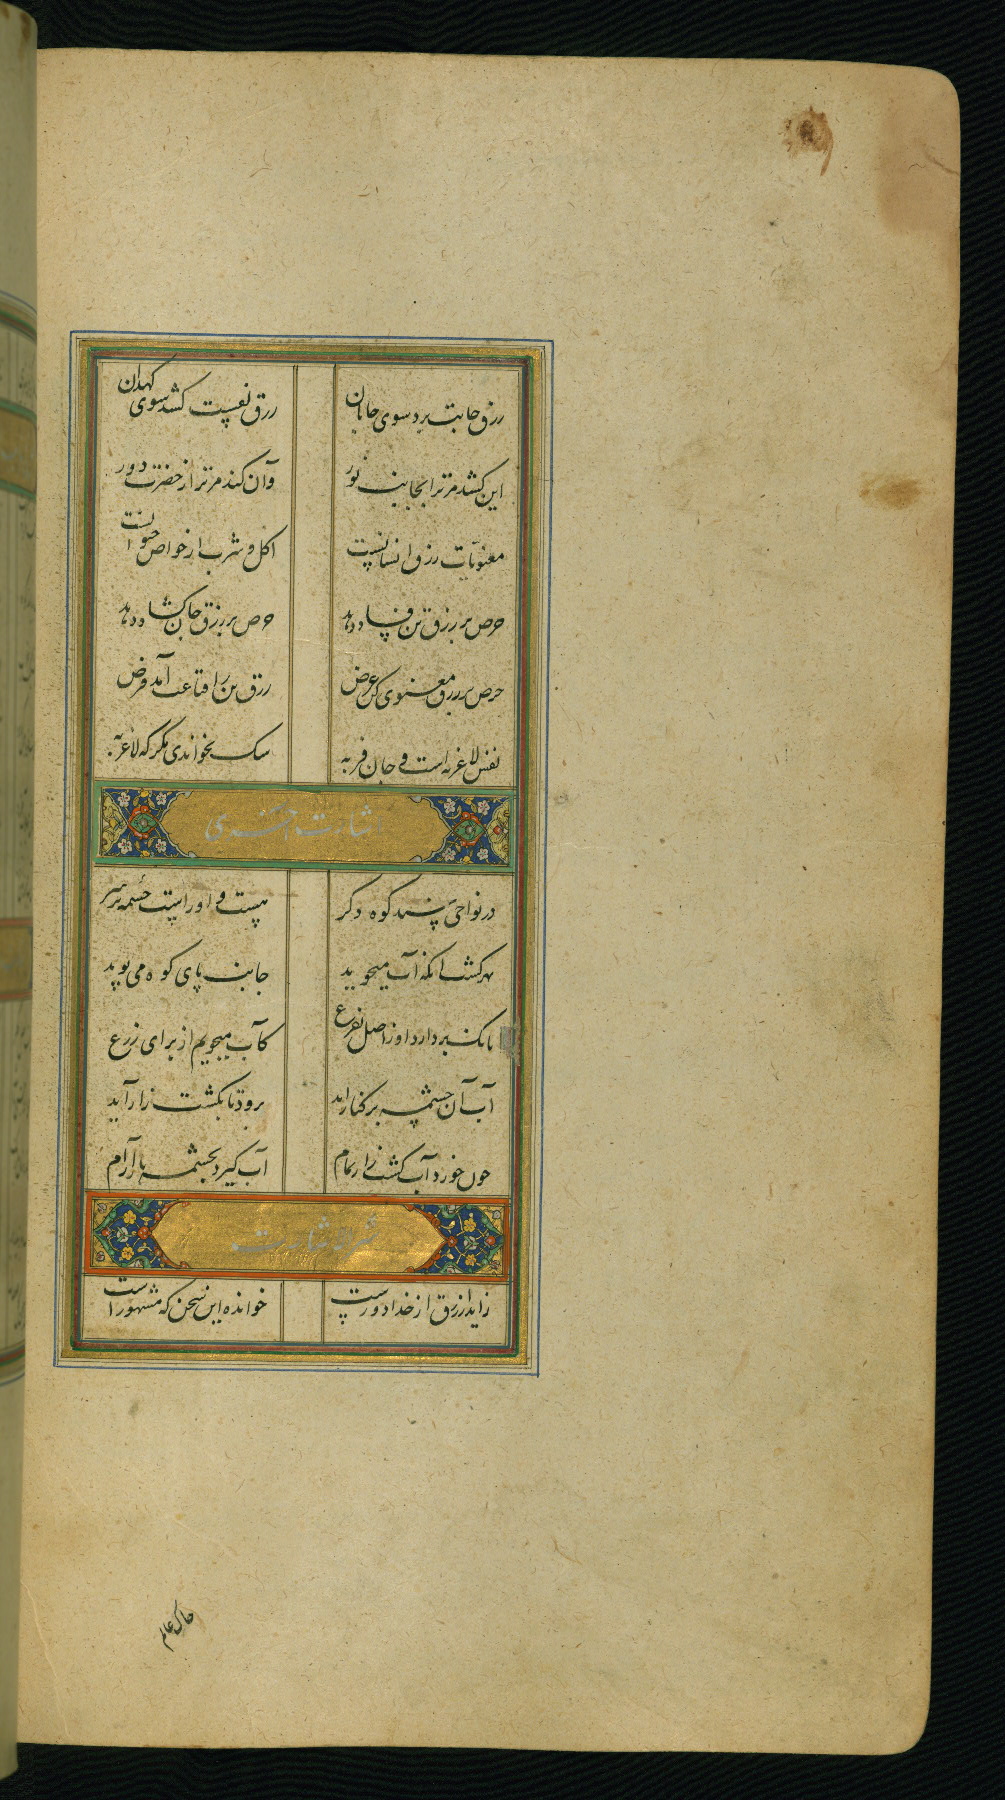 رزق جانت برد سوی جانان
رزق نفست کشد سوی کهدان
این کشد مر ترا بجانب نور
وآن کند مر ترا از حضرت دور
معنویات رزق انسانیست
اکل و شرب از خواص حیوانیست
حرص بر رزق تن فساد دهد
حرص بر رزق جان گشاد دهد
حرص بر رزق معنوی کن عرض
رزق تن را قناعت آمد فرض
نفس لاغر به است و جان فربه
سک بخواندی مکر که لاغر به
اشارت
در نواحی سهند کوه دکر
هست و او راست چشمه بر سر
هر کشا آنکه آب میجوید
جانب پای کوه می پوید
بانک بردارد او ز اصل بفرع
کآب میجویم از برای زرع
آب آن چشمه بر کنار آید
برود تا بکشت زار آید
چون خورد آب کشت زار تمام
آب گیرد بچشمه باز آرام
ثمرة الاشارت
زاید ار رزق از خدا دورست
خوانده این سخن که مشهور است
خاک عالم